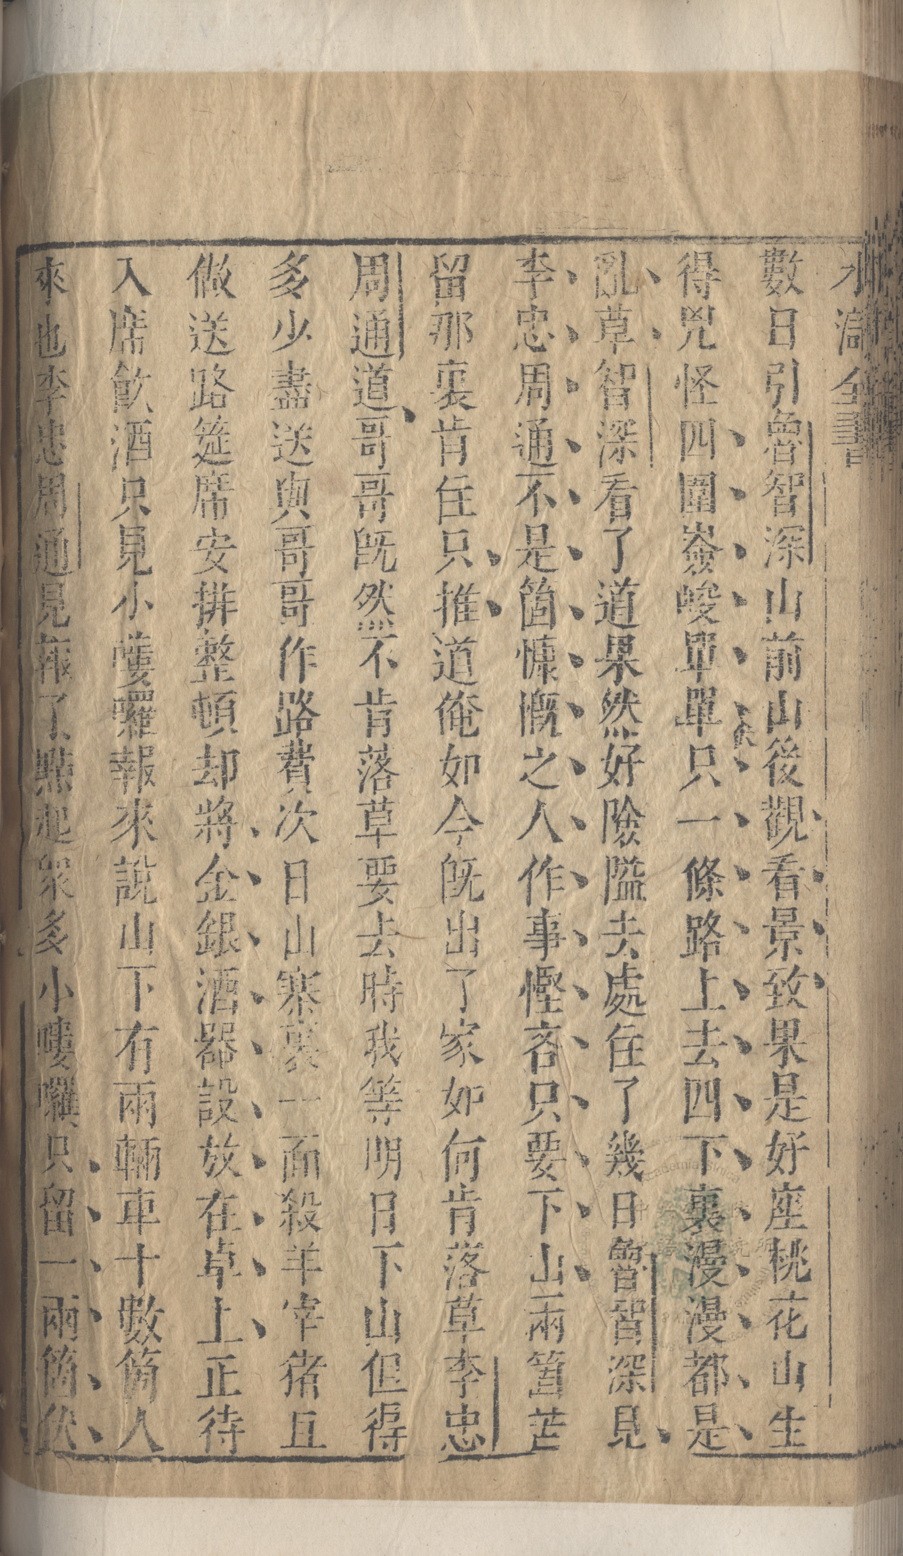 水滸全書
數日引魯智深山前山後觀看景致果是好座桃花山生
得兇怪四圍嶔峻單單只一條路上去四下裏漫漫都是
亂草智深看了道果然好險隘去處住了幾日魯智深見
李忠周通不是箇慷慨之人作事慳吝只要下山兩箇苦
留那裏肯住只推道俺如今既出了家如何肯落草李忠
周通道哥哥既然不肯落草要去時我等明日下山但得
多少盡送與哥哥作路費次日山寨裏一面殺羊宰猪且
做送路筵席安排整頓却將金銀酒器設放在卓上正待
入席飲酒只見小嘍囉報來說山下有兩輛車十數箇人
來也李忠周通見報了點起衆多小嘍囉只留一兩箇伏